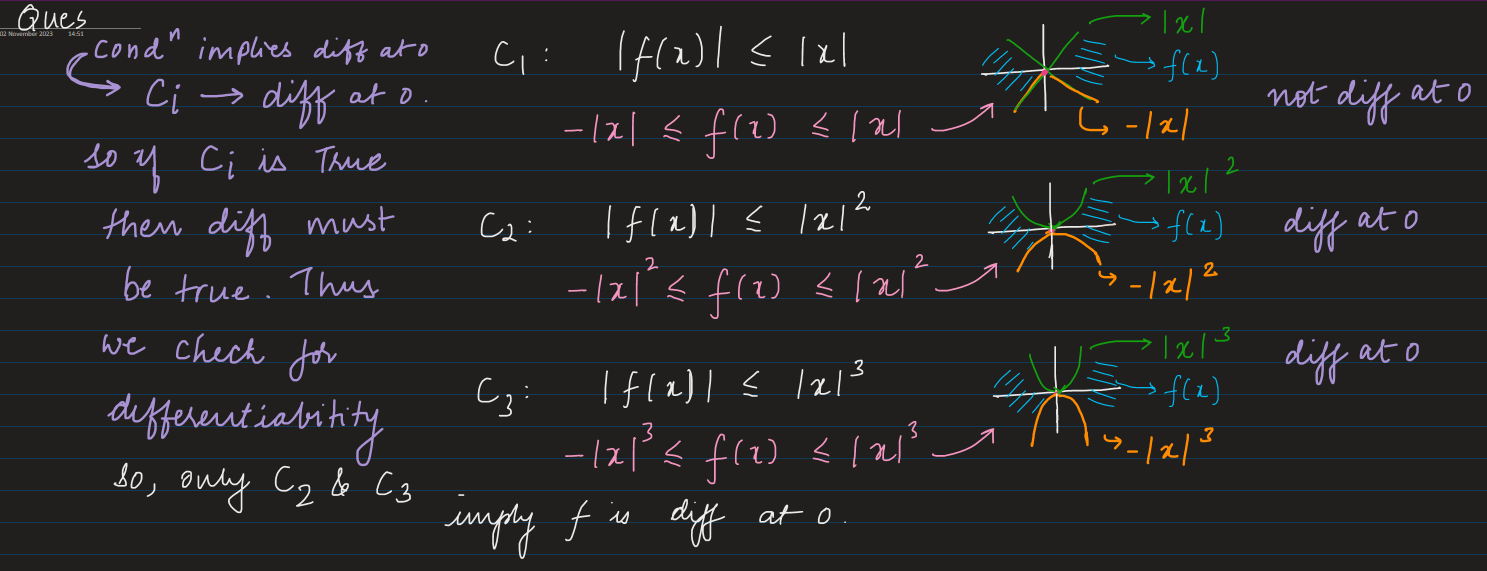 Ques
02 November 2023 14:51
Condⁿ implies diff at 0
Ci → diff at 0.
So if Ci is True
then diff must
be true. Thus
we check for
differentiability
So, only C₂ & C₃ imply f is diff at 0.
C₁: |f(x)| ≤ |x|
-|x| ≤ f(x) ≤ |x|
|x|
f(x)
-|x|
not diff at 0
C₂: |f(x)| ≤ |x|²
-|x|² ≤ f(x) ≤ |x|²
|x|²
f(x)
-|x|²
diff at 0
C₃: |f(x)| ≤ |x|³
-|x|³ ≤ f(x) ≤ |x|³
|x|³
f(x)
-|x|³
diff at 0